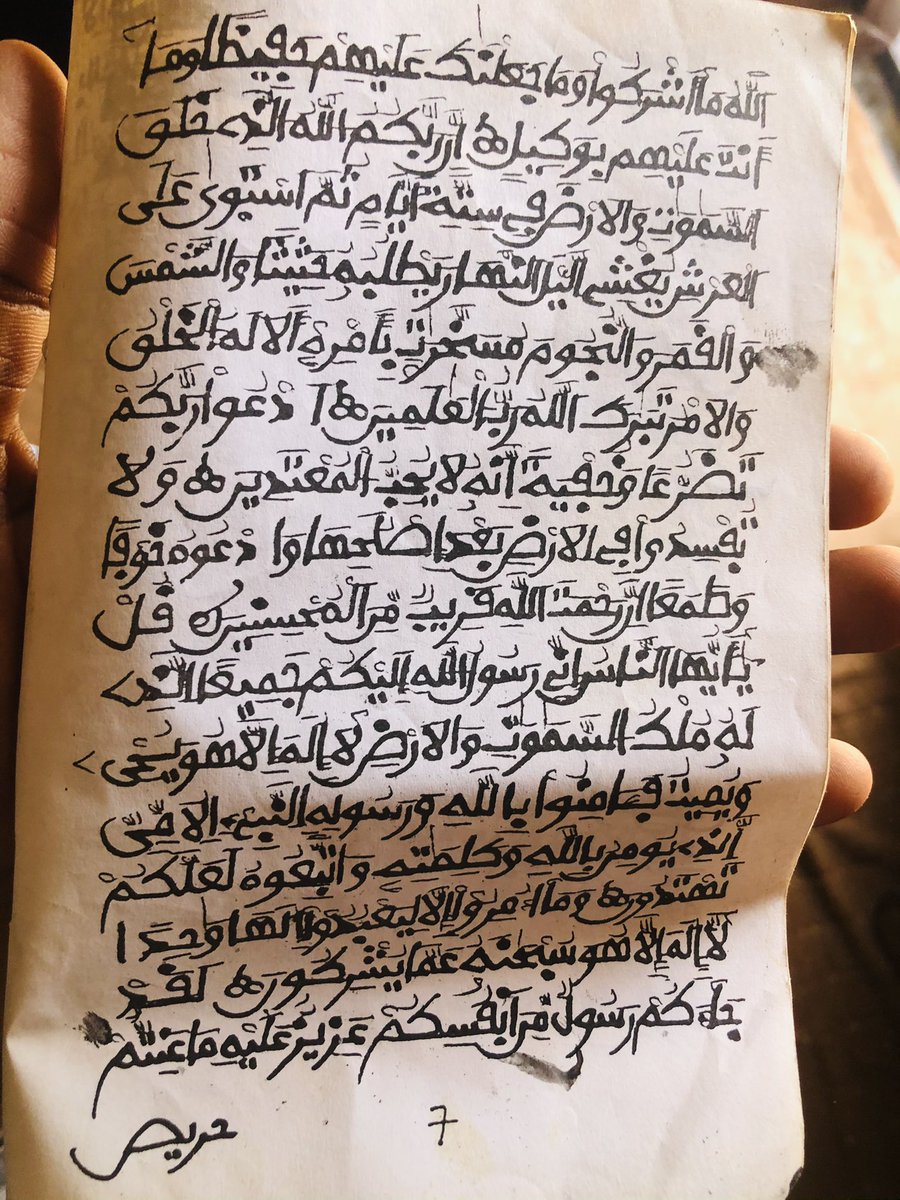 اللَّهُ مَا أَشْرَكُوا وَمَا جَعَلْنَكَ عَلَيْهِمْ حَفِيظًا وَمَا
أَنتَ عَلَيْهِم بِوَكِيلٍ ه إِنَّ رَبَّكُمُ اللَّهُ الَّذِے خَلَقَ
السَّمَوَتِ وَالَارْضَ فِي سِتَّةِ أَيَّامٍ ثُمَّ اسْتَوَى عَلَى
الْعَرْشِ يُغْشِے اليْلَ النَّهَارَ يَطْلُبُهُ حَثِيثًا وَالشَّمْسَ
وَالْقَمَرَ وَالنُّجُومَ مُسَخَّرَتٍ بِأَمْرِهِ أَلَا لَهُ الْخَلْقُ
وَالَامْرُ تَبَرَكَ اللَّهُ رَبُّ الْعَلَمِينَ ه ادْعُوا رَبَّكُمْ
تَضَرُّعًا وَخُفْيَةً إِنَّهُ لَا يُحِبُّ الْمُعْتَدِينَ ه وَلَا
تُفْسِدُوا فِي الَارْضِ بَعْدَ إِصْلَحِهَا وَادْعُوهُ خَوْفًا
وَطَمَعًا إِنَّ رَحْمَتَ اللَّهِ قَرِيبٌ مِّنَ الْمُحْسِنِينَ ه قُلْ
يَأَيُّهَا النَّاسُ إِنِّي رَسُولُ اللَّهِ إِلَيْكُمْ جَمِيعًا الَّذِے
لَهُ مُلْكُ السَّمَوَتِ وَالَارْضِ لَا إِلَهَ إِلَّا هُوَ يُحْيِ
وَيُمِيتُ فَـَامِنُوا بِاللَّهِ وَرَسُولِهِ النَّبِيءِ الَامِّيِّ
الَّذِے يُومِنُ بِاللَّهِ وَكَلِمَتِهِ وَاتَّبِعُوهُ لَعَلَّكُمْ
تَهْتَدُونَ ه وَمَا أُمِرُوا إِلَّا لِيَعْبُدُوا إِلَهًا وَحِدًا
لَّا إِلَهَ إِلَّا هُوَ سُبْحَنَهُ عَمَّا يُشْرِكُونَ ه لَقَدْ
جَاءَكُمْ رَسُولٌ مِّنَ أَنفُسِكُمْ عَزِيزٌ عَلَيْهِ مَا عَنِتُّمْ
حريص
7